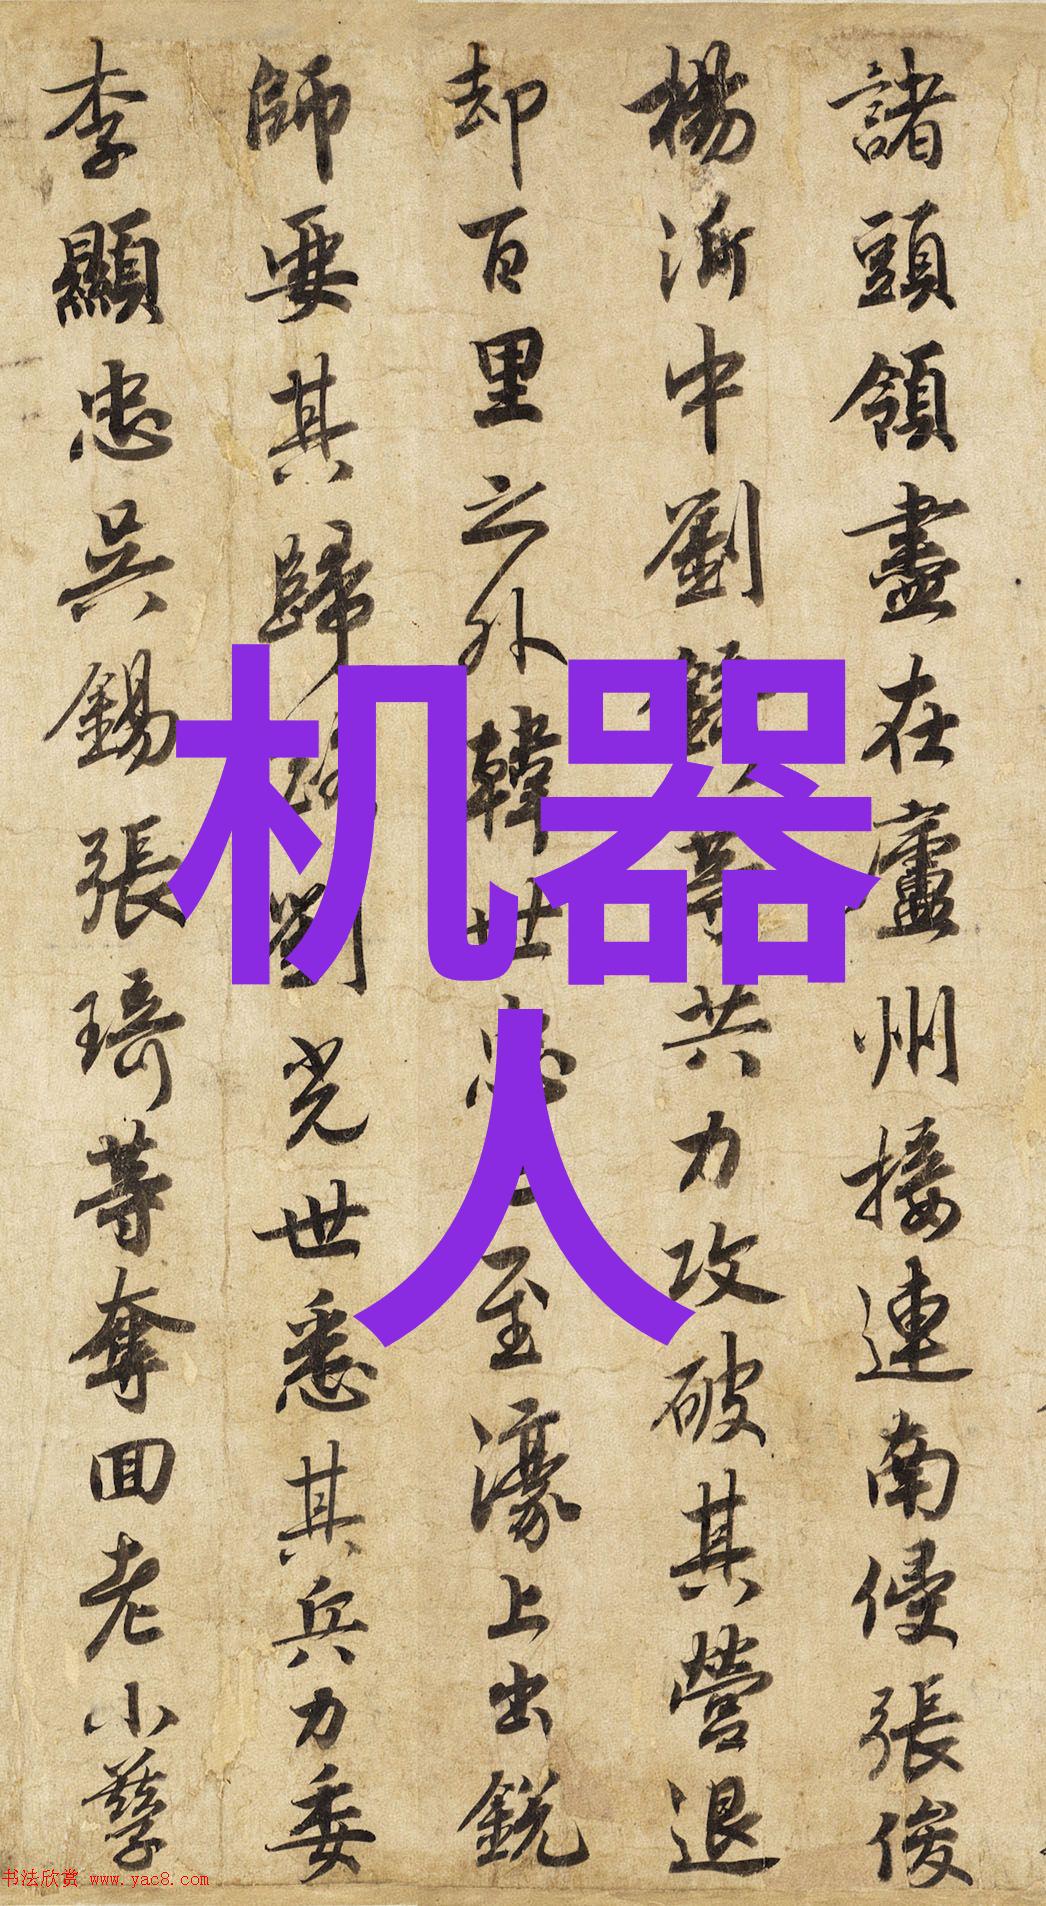 諸頭領盡在廬州接連南侵張俊
楊沂中劉錡等共力攻破其營退
却百里之外韓世忠已至濠上出銳
師要其歸路劉光世悉其兵力委
李顯忠吳錫張琦等奪囬老小孳
机器
人
书法欣赏 www.yac8.com